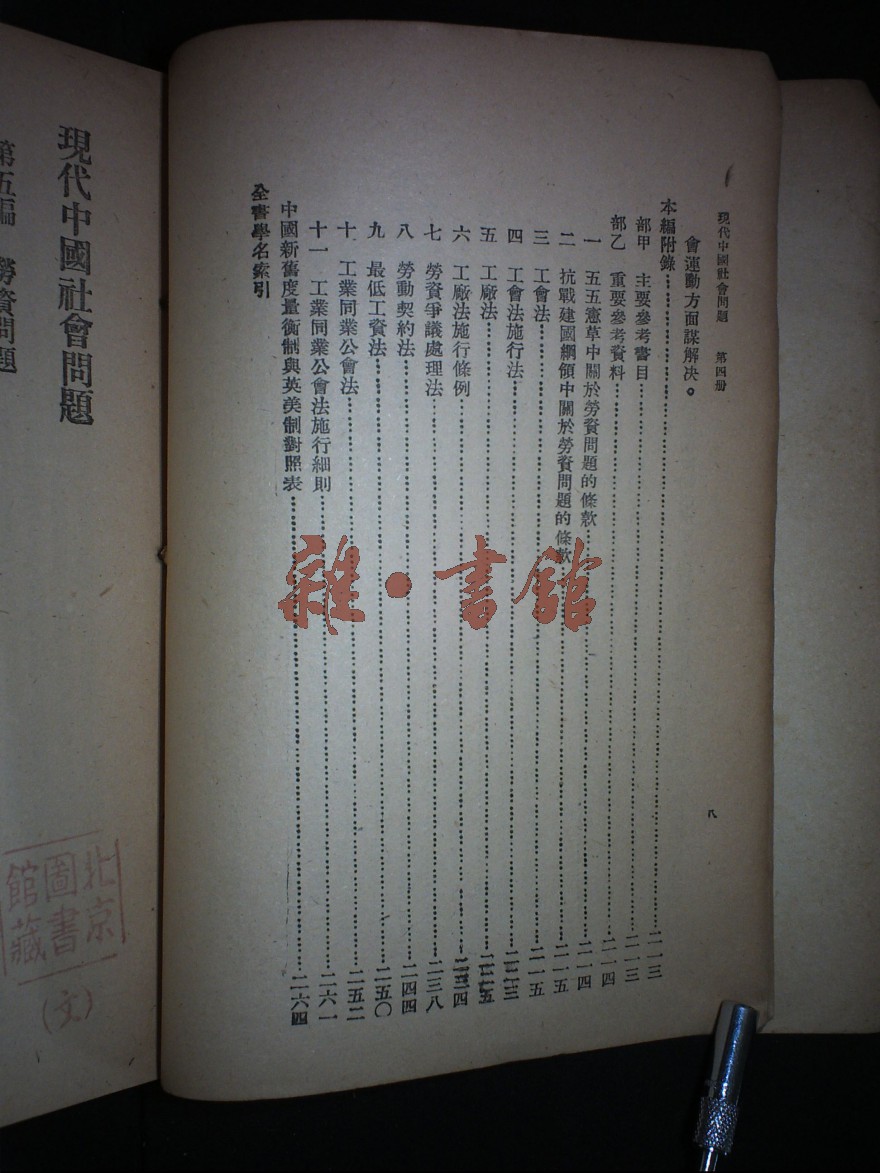 現代中國社會問題　第四册　八
會運動方面謀解决。
本編附錄……二一三
部甲　主要參考書目……二一三
部乙　重要參考資料……二一四
一　五五憲草中關於勞資問題的條款……二一四
二　抗戰建國綱領中關於勞資問題的條款……二一五
三　工會法……二一五
四　工會法施行法……二二三
五　工廠法……二二五
六　工廠法施行條例……二三四
七　勞資爭議處理法……二三八
八　勞動契約法……二四四
九　最低工資法……二五〇
十　工業同業公會法……二五二
十一　工業同業公會法施行細則……二六一
中國新舊度量衡制與英美制對照表……二六四
全書學名索引
雜·書館
現代中國社會問題
第五編　勞資問題
北京
圖書
館藏
(文)